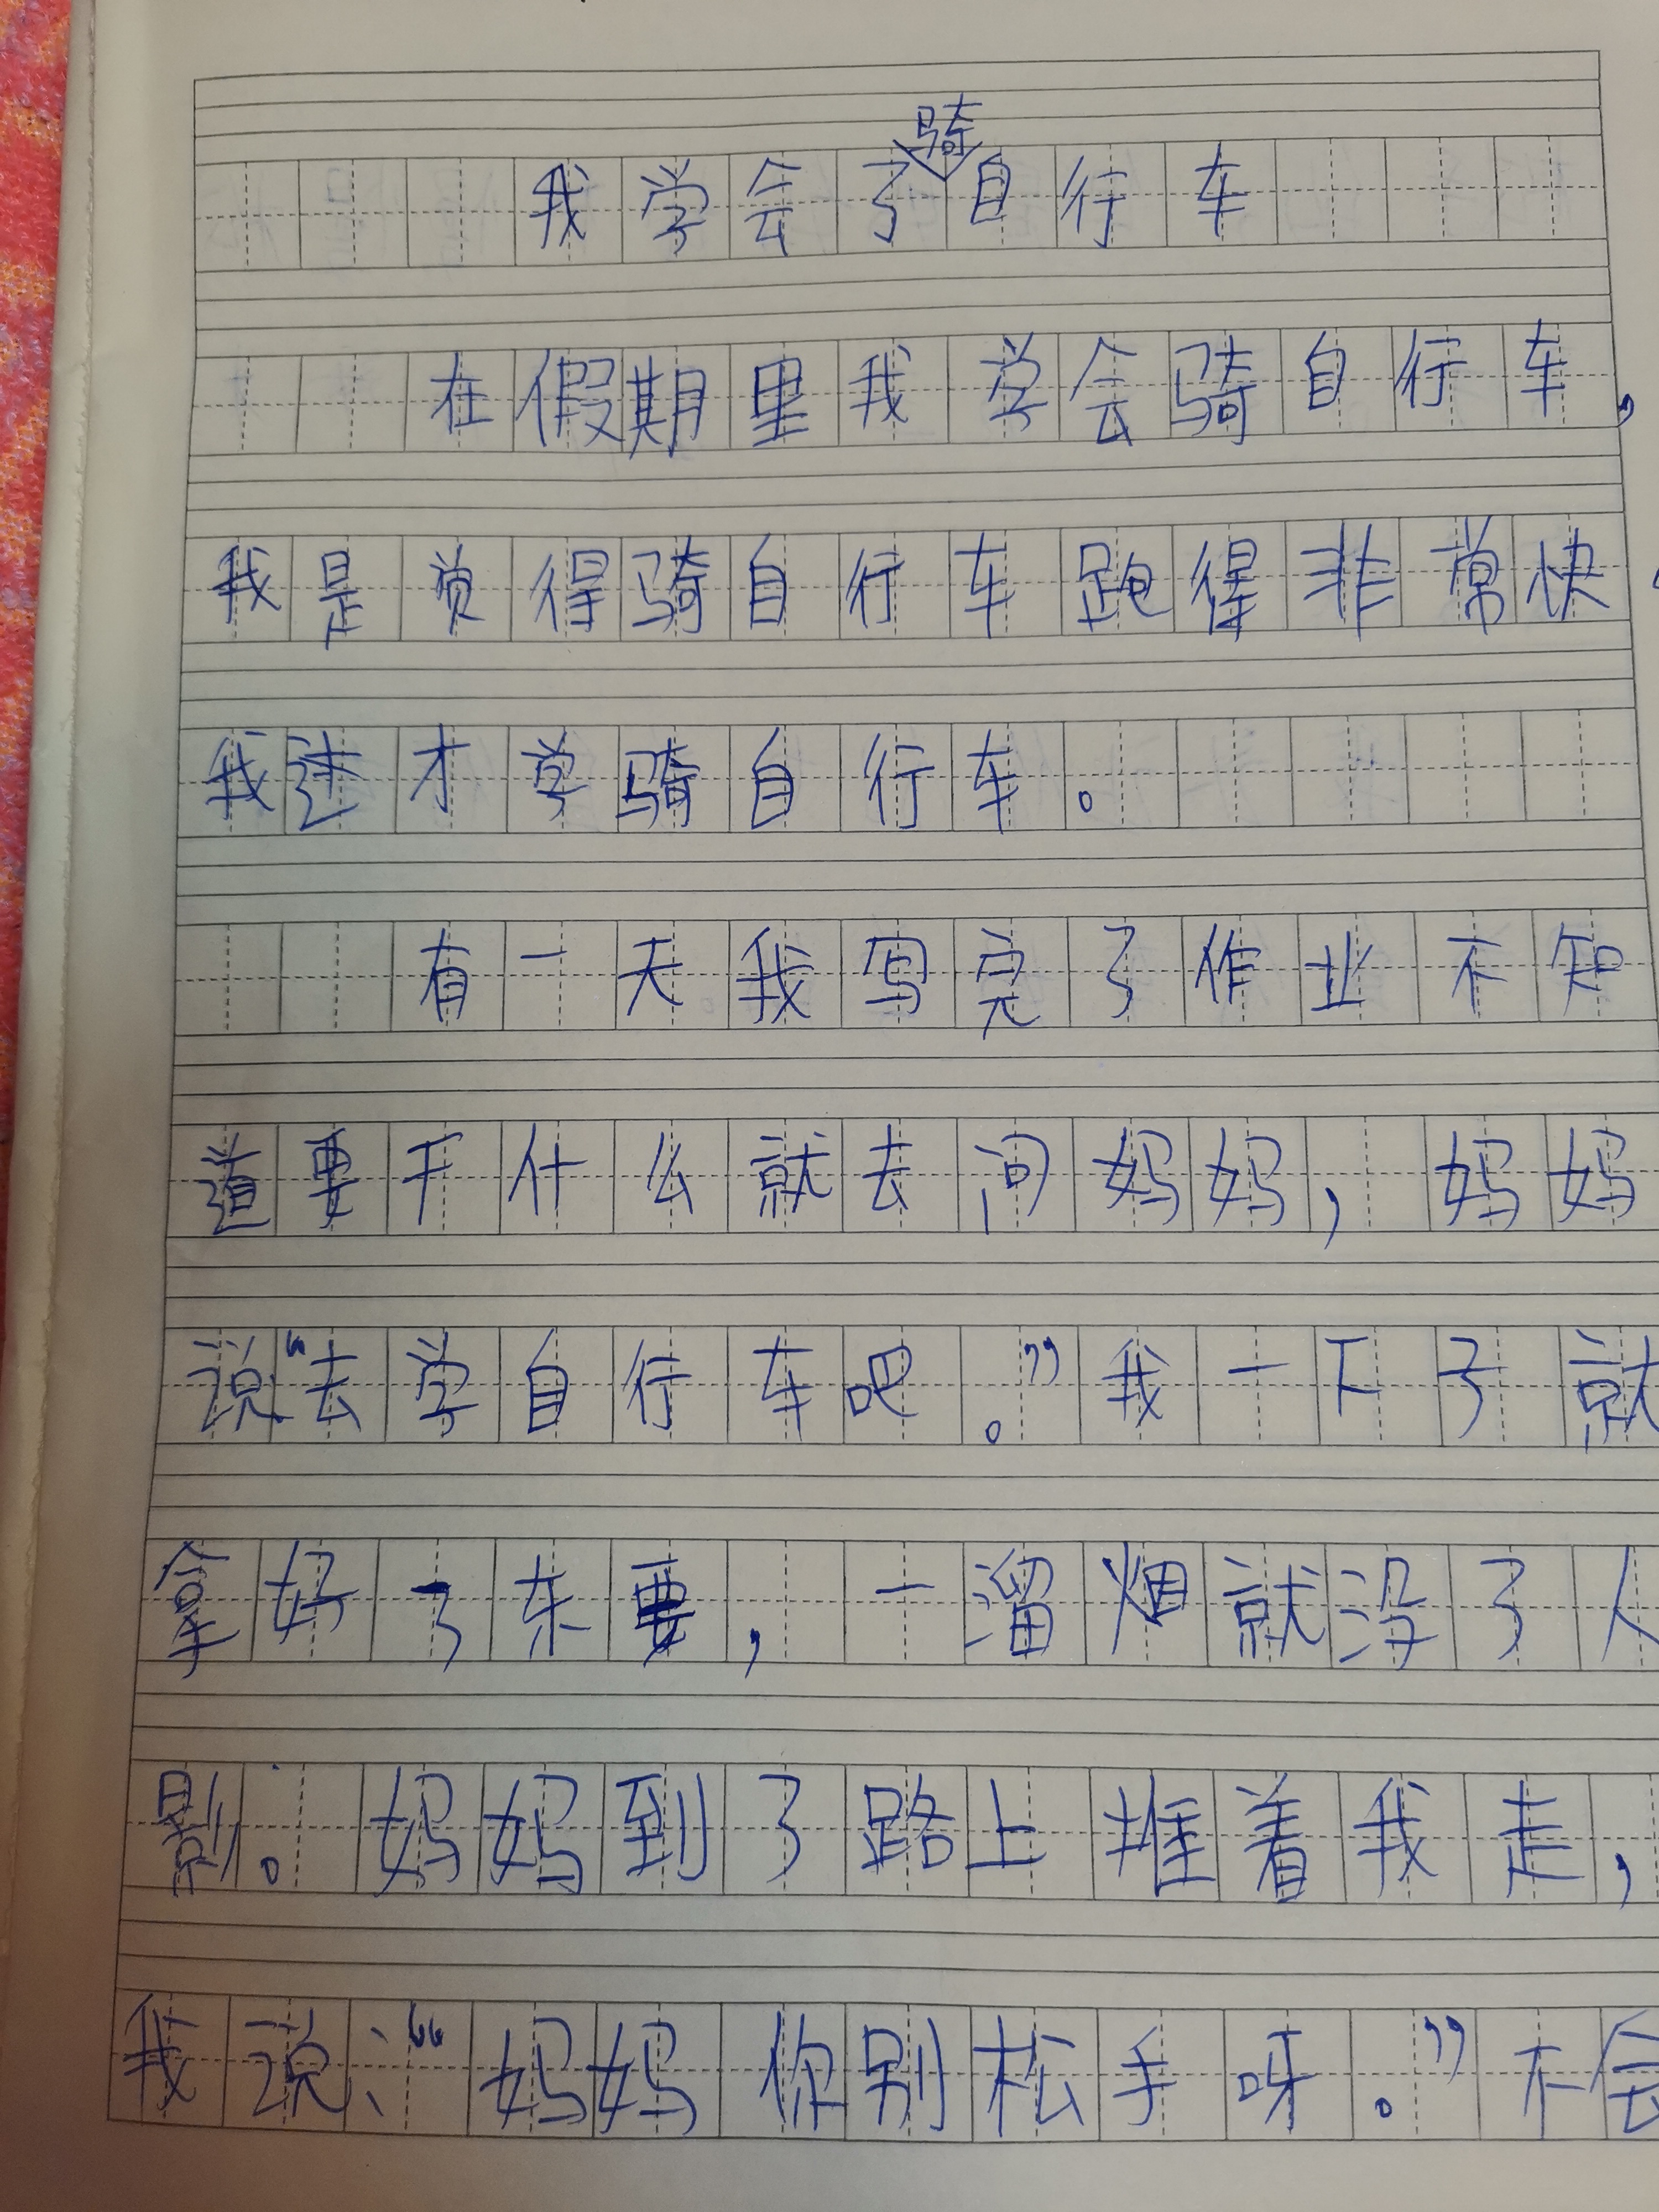 我学会了骑自行车
在假期里我学会骑自行车,
我是觉得骑自行车跑得非常快
我才学骑自行车。
有一天我写完了作业不知
道要干什么就去问妈妈,妈妈
说“去学自行车吧。”我一下子就
拿好了东要,一溜烟就没了人
影。妈妈到了路上推着我走,
我说:“妈妈你别松手呀.”不会